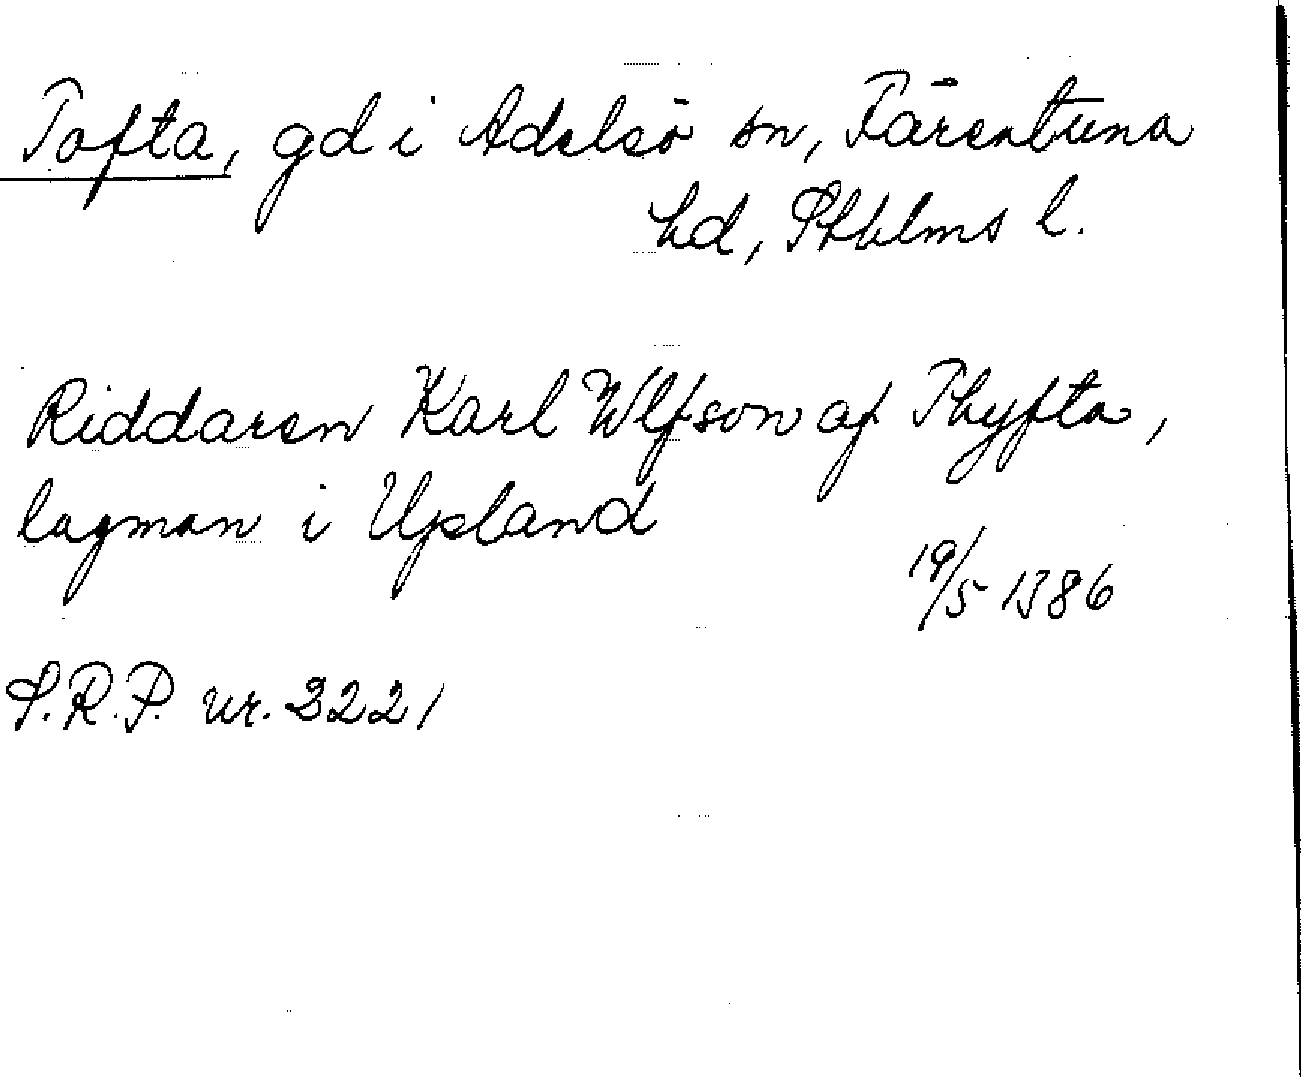 Tofta, gd i Adelsö sn, Färentuna
hd, Sthlms l.
Riddaren Karl Ulfson af Thyfta,
lagman i Upland
19/5 1386
S.R.P. nr. 2221